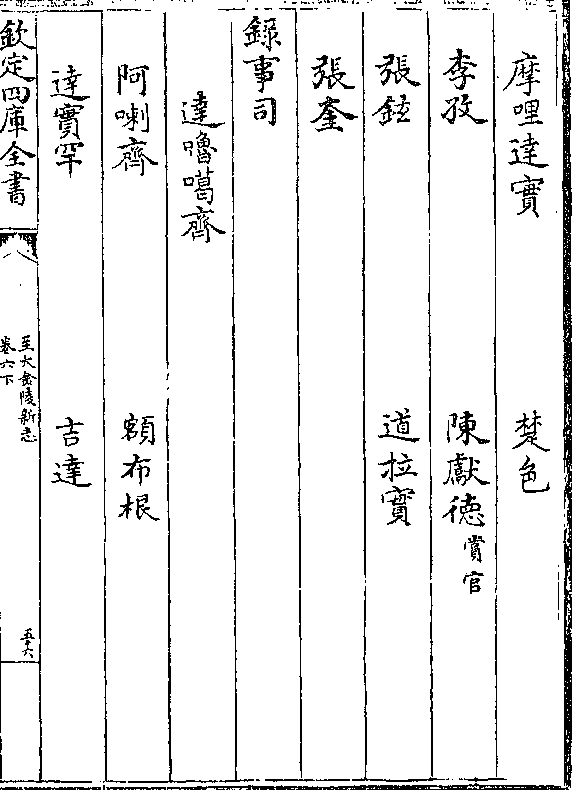 摩哩達實 椘色
李孜 陳獻德賞官
張鉉 道拉實
張奎
錄事司
達嚕噶齊
阿喇齊 額布根
達實罕 吉達
欽定四庫全書
至大金陵新志
卷六下
五十六